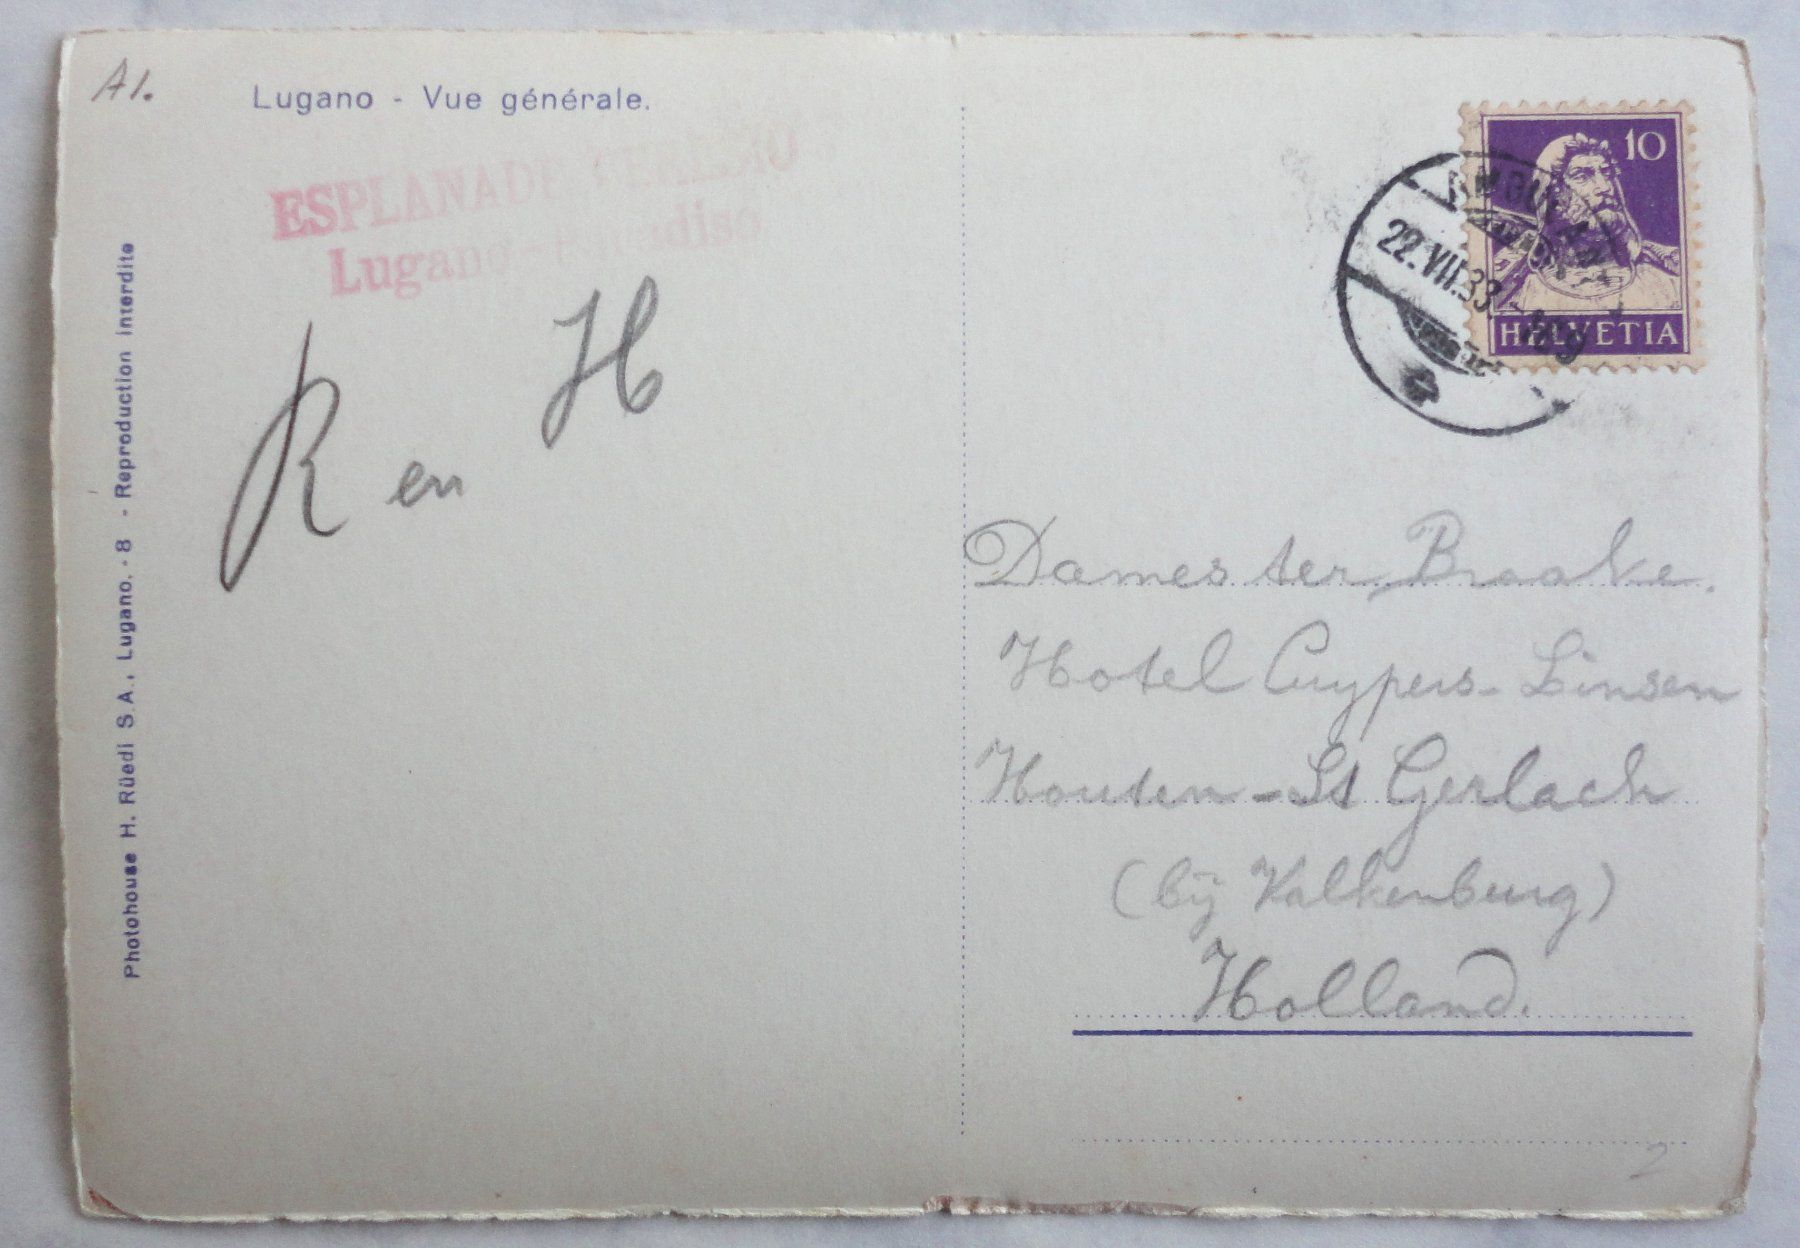 A1.
Lugano - Vue générale.
ESPLANADE
Lugano-Paradiso
R en H
Photohouse H. Rüedi S.A., Lugano. - 8 - Reproduction interdite
10
HELVETIA
22.VII.33
Dames ter Braake.
Hotel Cuypers-Linsen
Houten - St Gerlach
(bij Valkenburg)
Holland.
2